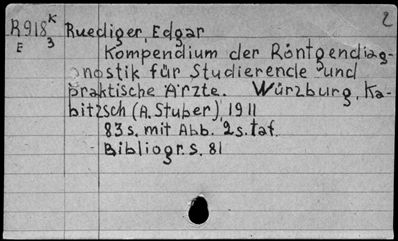 2
R918 K Ruediger, Edgar
E 3
Kompendium der Röntgendiag-
nostik für Studierende und
praktische Ärzte. Würzburg, Ka-
bitzsch (A. Stuber), 1911
83 s. mit Abb. 2 s. taf.
Bibliogr. s. 81